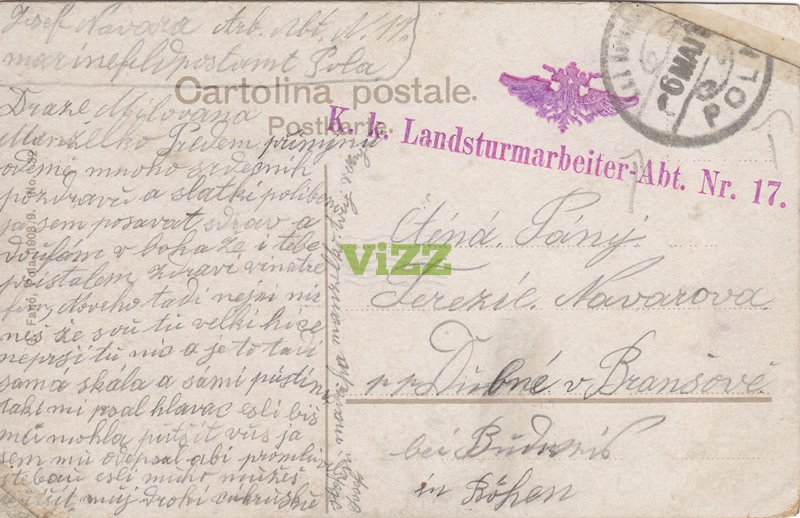 Josef Navara Arb. Abt. N. 17.
marinefeldpostamt Pola
Cartolina postale.
Postkarte.
K. k. Landsturmarbeiter-Abt. Nr. 17.
6 MAI
POLA
Draze Milovana
Manžélko Předem přimy
odemě mnoho srdesnih
pozdravu a slatki poliben
ja sem posavat zdrav a
doufám v boha že i tebe
při stalem zdravi
Noveho tadi nejni nic
než že sou tu velki hice
neprši tu nic a je to tadi
samá skála a sámi pustin
taki mi psal hlavac esli bis
mu mohla pučit vus ja
sem mu odepsal abi promluvil
stebou esli muho mužeš
pučit muj drohi
Ctěná Páni
Terezie Navarova
pp Dubné v Branšově
bei Budweis
in Böhen
ViZZ
1908/9. No.